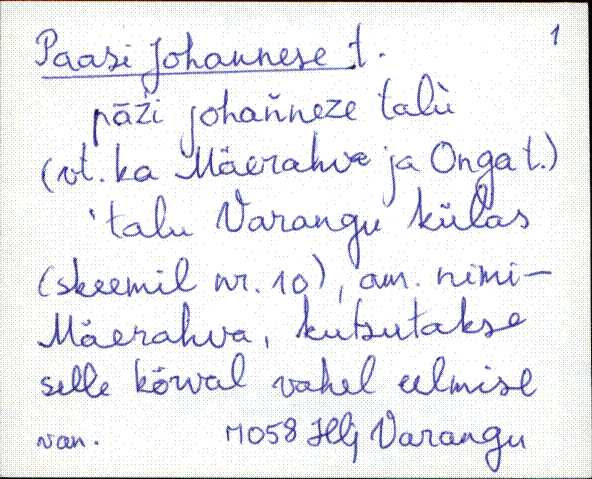 1
Paasi Johannese t.
pāži johaňneze talù
(vt. ka Mäerahva ja Onga t.)
'talu Varangu külas
(skeemil nr. 10), am. nimi-
Mäerahva, kutsutakse
selle kõrval vahel eelmise
van. M058 Hlj Varangu